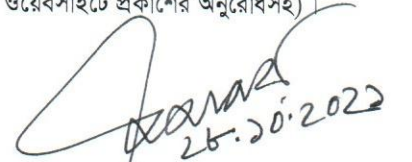 ওয়েবসাইটে প্রকাশের অনুরোধসহ)।
২৮.১০.২০২১